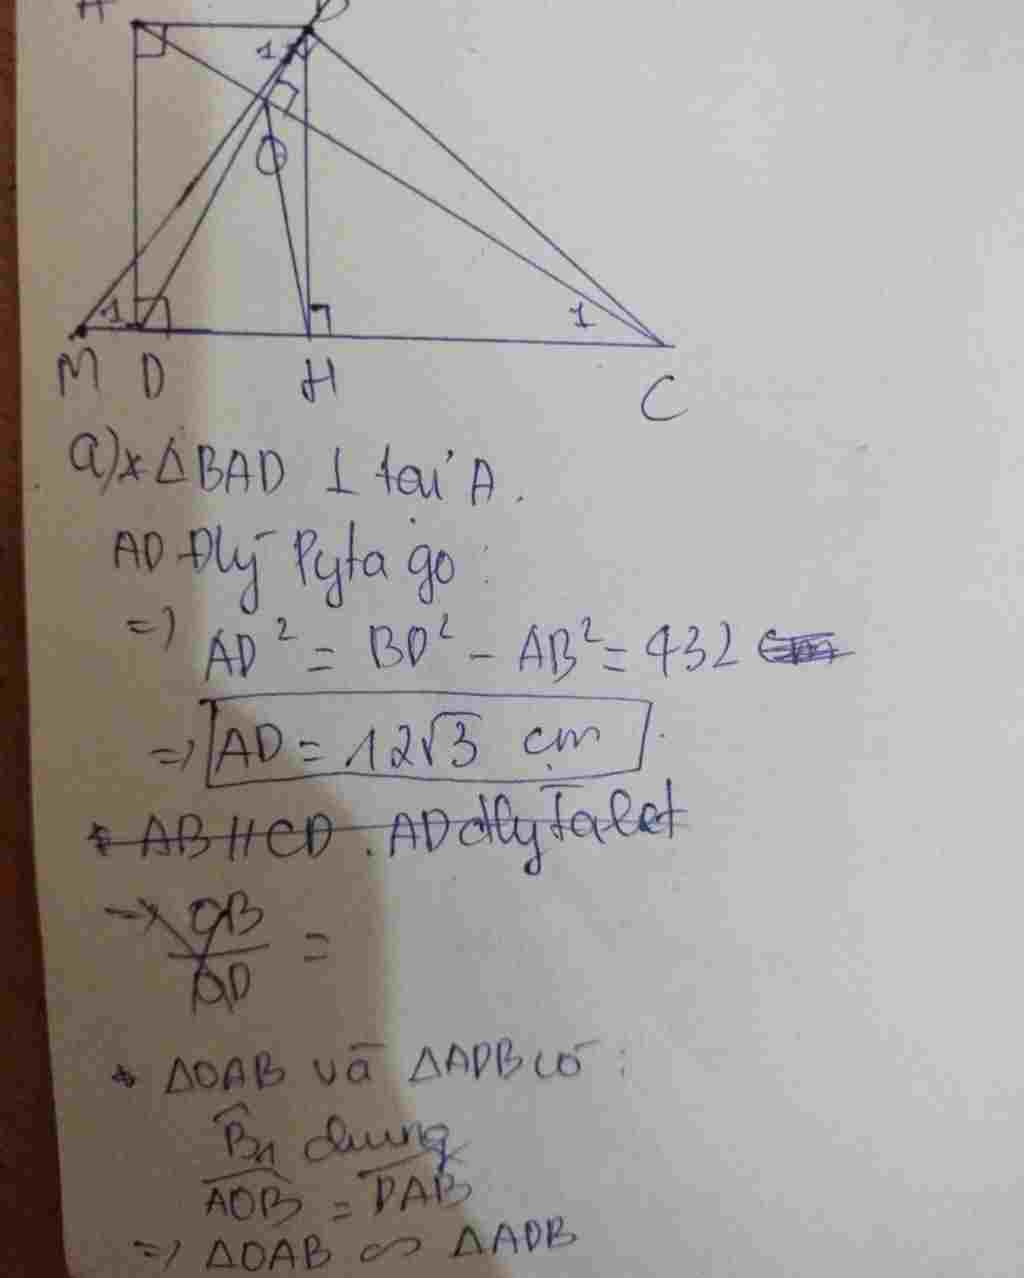 A B
1
O
1 1
M D H C
a) * ΔBAD ⊥ tại A.
AD Đlý Pytago:
=> AD² = BD² - AB² = 432
=> AD = 12√3 cm
* AB // CD. AD đlý Talet
=> OB/OD =
* ΔOAB và ΔADB có:
B̂₁ chung
AOB = DAB
=> ΔOAB ∽ ΔADB